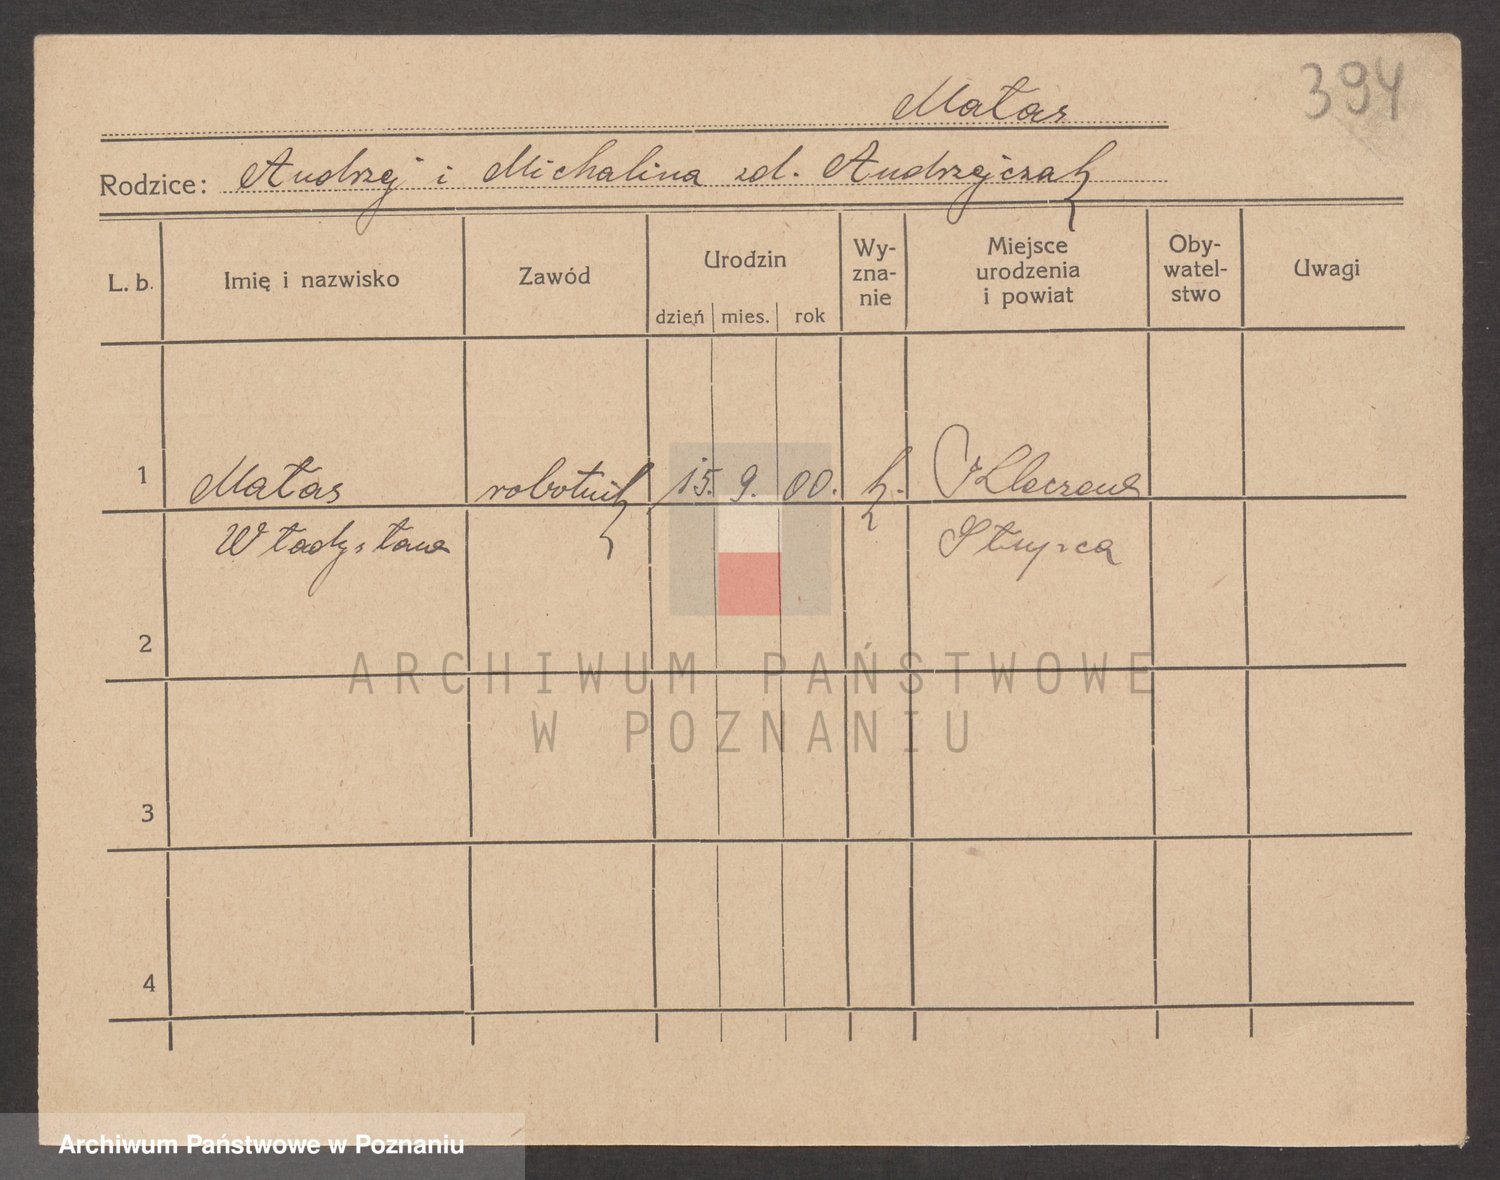 394
Matas
Rodzice: Andrzej i Michalina zd. Andrzejczak
L. b. Imię i nazwisko Zawód Urodzin dzień mies. rok Wy-zna-nie Miejsce urodzenia i powiat Oby-watel-stwo Uwagi
1 Matas robotnik 15. 9. 00. k.
Władysława Słupca
2
3
4
ARCHIWUM PAŃSTWOWE
W POZNANIU
Archiwum Państwowe w Poznaniu